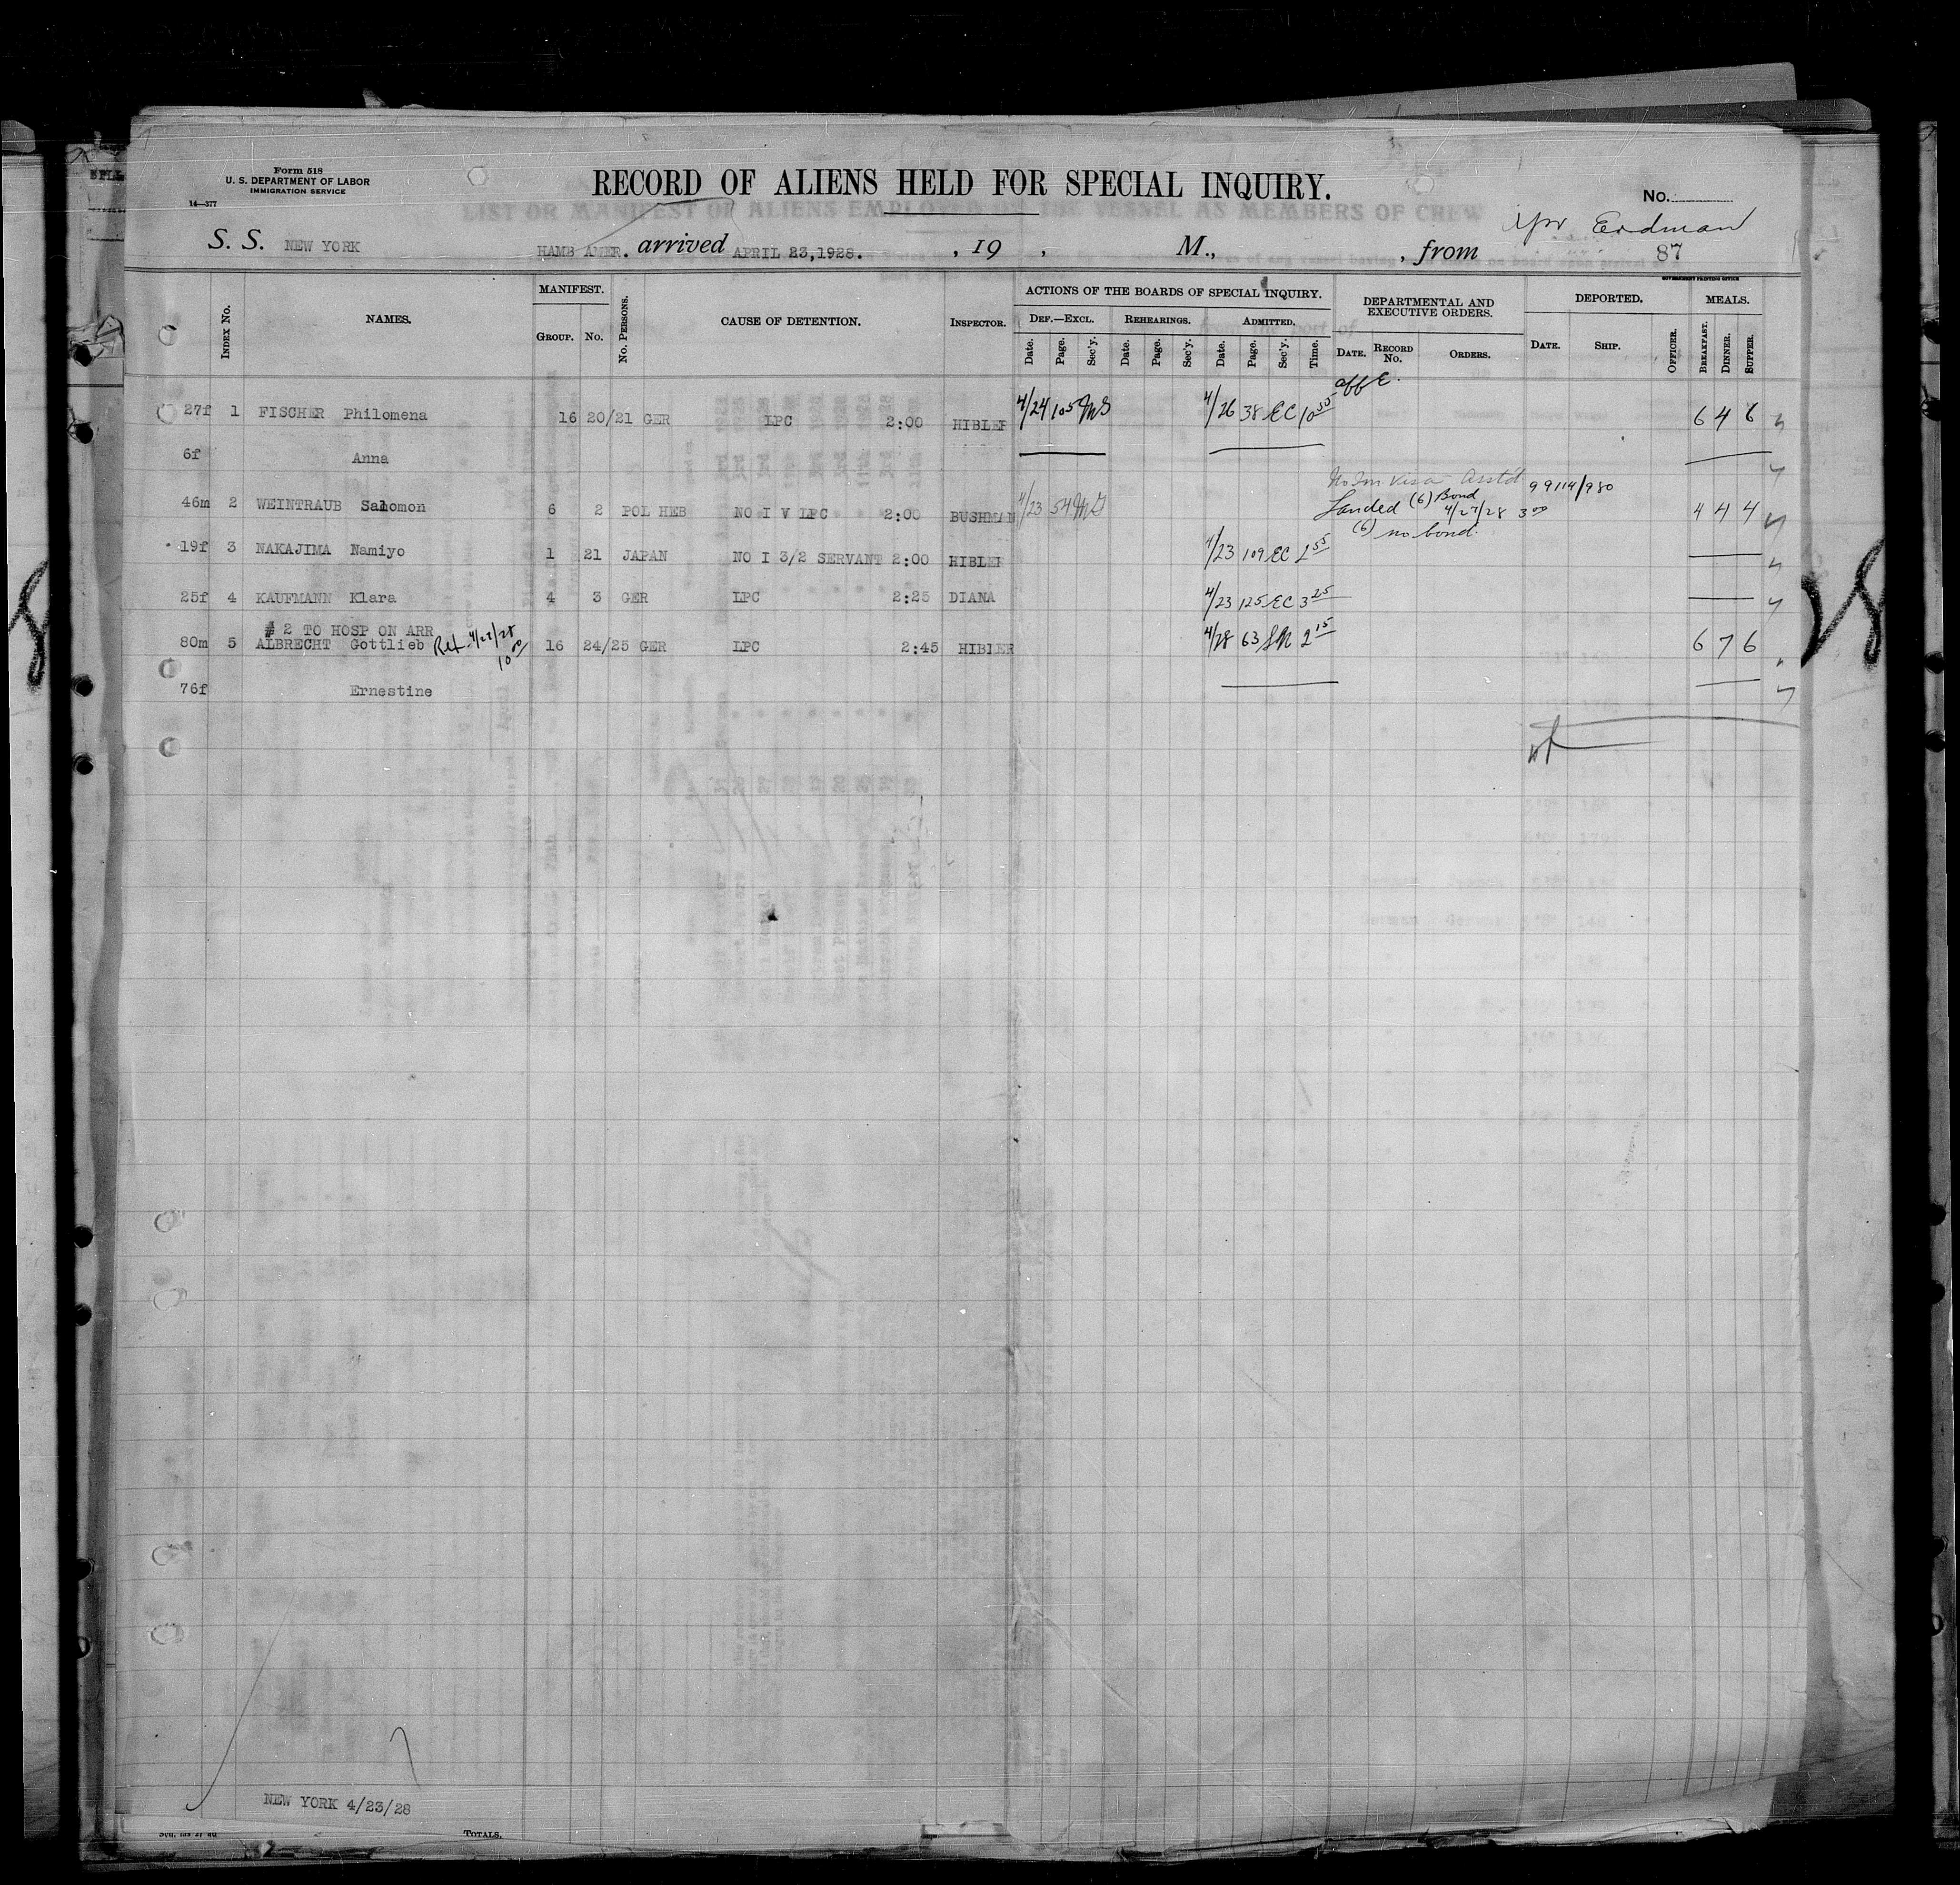 Form 518
U. S. DEPARTMENT OF LABOR
IMMIGRATION SERVICE
14—377
RECORD OF ALIENS HELD FOR SPECIAL INQUIRY.
No.
LIST OR MANIFEST OF ALIENS EMPLOYED ON THE VESSEL AS MEMBERS OF CREW
Erdman
S. S. NEW YORK HAMB AMER. arrived APRIL 23,1928. , 19 , M., , from 87
GOVERNMENT PRINTING OFFICE
INDEX NO. NAMES. MANIFEST. GROUP. NO. NO. PERSONS. CAUSE OF DETENTION. INSPECTOR. ACTIONS OF THE BOARDS OF SPECIAL INQUIRY. DEPARTMENTAL AND EXECUTIVE ORDERS. DEPORTED. MEALS.
DEF.—EXCL. REHEARINGS. ADMITTED.
Date. Page. Sec'y. Date. Page. Sec'y. Date. Page. Sec'y. Time. DATE. RECORD No. ORDERS. DATE. SHIP. OFFICER. BREAKFAST. DINNER. SUPPER.
27f 1 FISCHER Philomena 16 20/21 GER LPC 2:00 HIBLER 4/24 105 MS 4/26 38 EC 10 35 6 4 6
6f Anna
46m 2 WEINTRAUB Salomon 6 2 POL HEB NO I V LPC 2:00 BUSHMAN 4/23 54 99114/980 4 4 4
Landed (6) Bond 4/27/28 3 00
(6) no bond.
19f 3 NAKAJIMA Namiyo 1 21 JAPAN NO I 3/2 SERVANT 2:00 HIBLER 4/23 109 EC 2 55
25f 4 KAUFMANN Klara 4 3 GER LPC 2:25 DIANA 4/23 125 EC 3 25
# 2 TO HOSP ON ARR
80m 5 ALBRECHT Gottlieb Ret. 4/27/28 10 00 16 24/25 GER LPC 2:45 HIBLER 4/28 63 SR 2 15 6 7 6
76f Ernestine
NEW YORK 4/23/28
TOTALS.